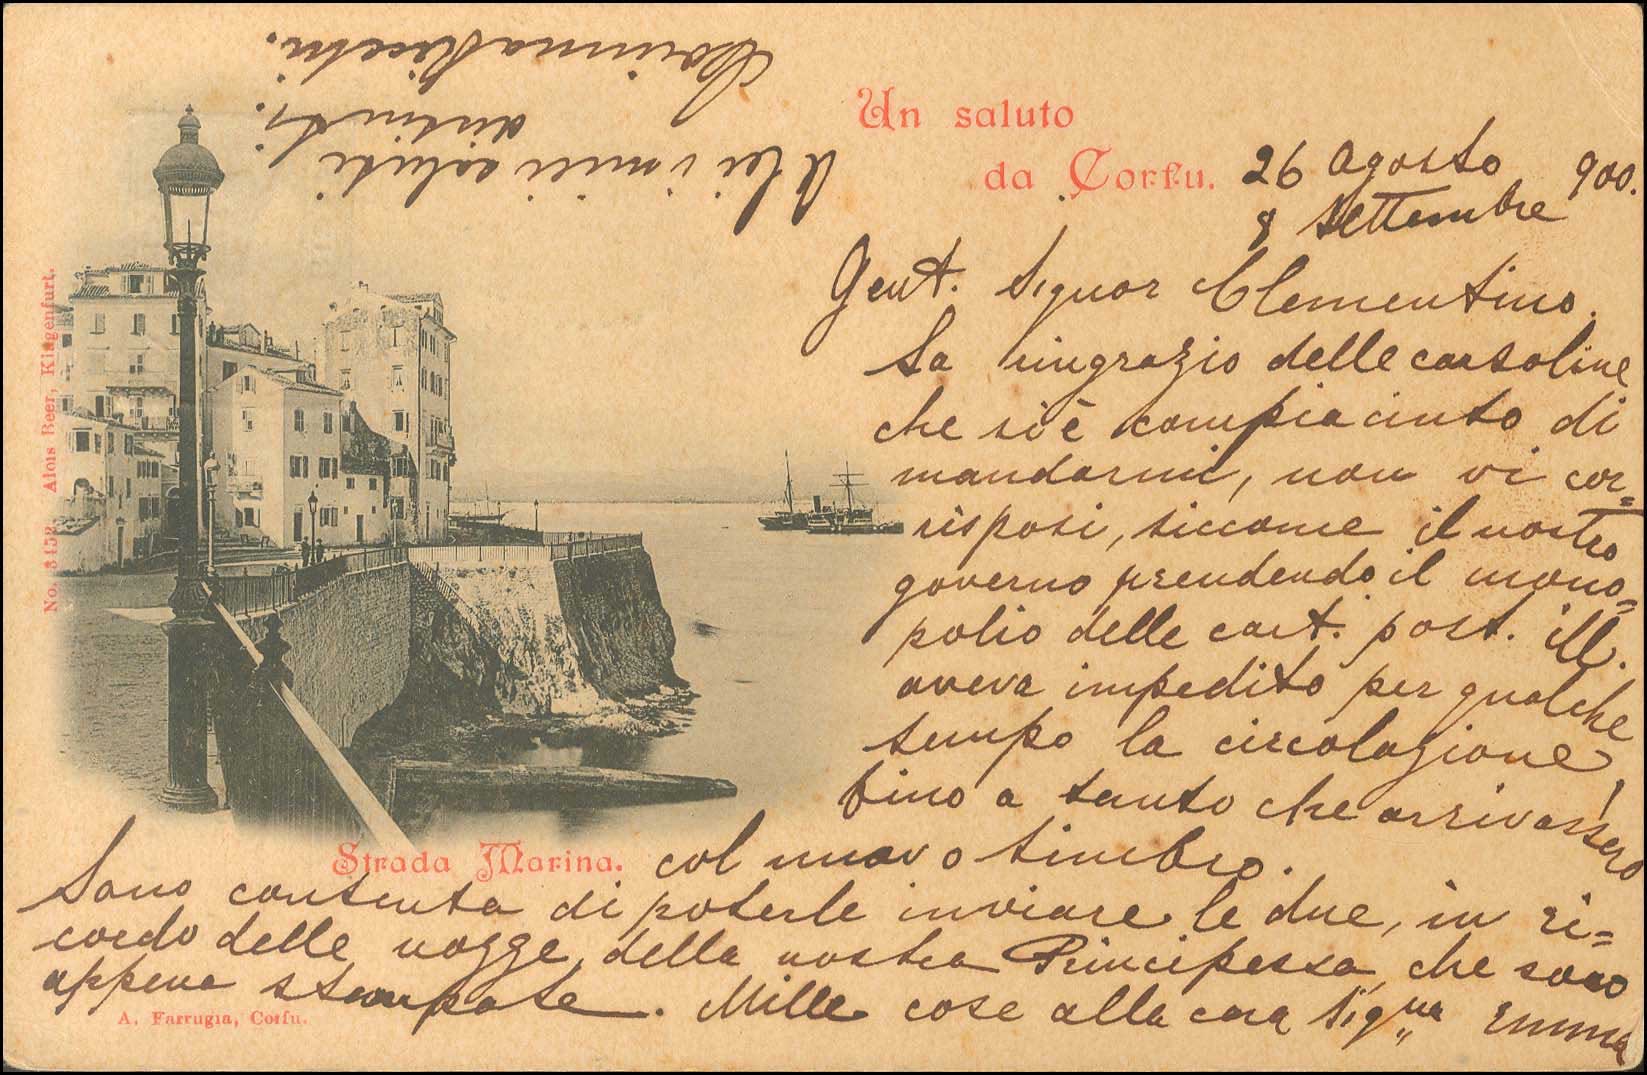 Un saluto
da Corfu.
26 Agosto 900.
8 Settembre
Gent. Signor Clementino.
La ringrazio delle cartoline
che si è compiaciuto di
mandarmi, non vi cor=
risposi, siccome il nostro
governo prendendo il mono=
polio delle cart. post. ill.
aveva impedito per qualche
tempo la circolazione,
fino a tanto che arrivassero
col nuovo timbro.
Sono contenta di poterle inviare le due, in ri=
cordo delle nozze, della nostra Principessa, che sono
appena stampate. Mille cose alla cara Sigᵘᵃ Emma
A Lei i miei saluti
distinti.
Corinna
Strada Marina.
No. 3452 Alois Beer, Klagenfurt.
A. Farrugia, Corfu.